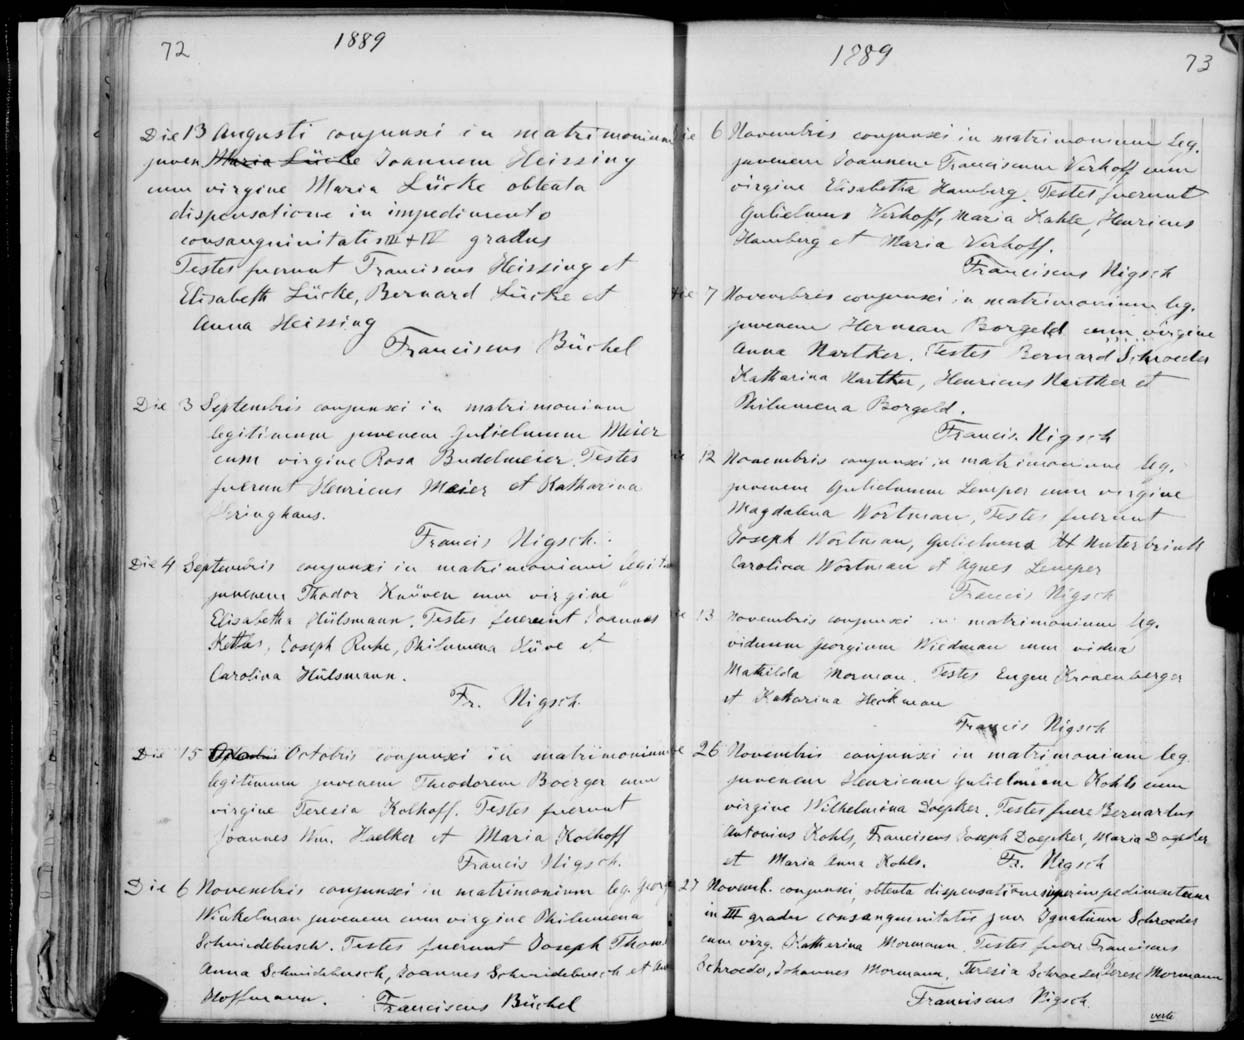 72
1889
Die 13 Augusti conjunxi in matrimonium
juven Maria Lücke Joannem Heissing
cum virgine Maria Lücke obtenta
dispensatione in impedimento
consanguinitatis III + IV gradus
Testes fuerunt Franciscus Heissing et
Elisabeth Lücke, Bernard Lücke et
Anna Heissing
Franciscus Büchel
Die 3 Septembris conjunxi in matrimonium
legitimum juvenem Gulielmum Meier
cum virgine Rosa Budelmeier. Testes
fuerunt Henricus Meier et Katharina
Francis Nigsch.
Die 4 Septembris conjunxi in matrimonium legit
juvenem Thodor Knüven cum virgine
Elisabetha Hülsmann. Testes fuerunt Joannes
Joseph Ruhe, Philumena Hüve et
Carolina Hülsmann.
Fr. Nigsch.
Die 15 Octobris conjunxi in matrimonium
legitimum juvenem Theodorem Boerger cum
virgine Teresia Kolhoff. Testes fuerunt
Joannes Wm. Haelker et Maria Kolhoff
Francis Nigsch.
Die 6 Novembris conjunxi in matrimonium leg. Georg
Winkelman juvenem cum virgine Philumena
Schmiedebusch. Testes fuerunt Joseph Thom
Anna Schmidebusch, Joannes Schmidebusch et
Hoffmann. Franciscus Büchel
1889
73
Die 6 Novembris conjunxi in matrimonium leg.
juvenem Joannem Franciscum Verhoff cum
virgine Elisabetha Hamberg. Testes fuerunt
Gulielmus Verhoff, Maria Kahle, Henricus
Hamberg et Maria Verhoff.
Franciscus Nigsch
Die 7 Novembris conjunxi in matrimonium leg.
juvenem Herman Borgeld cum virgine
Anna Nartker. Testes Bernard Schroeder
Katharina Nartker, Henricus Nartker et
Philumena Borgeld.
Francis. Nigsch
12 Novembris conjunxi in matrimonium leg.
juvenem Gulielmum Lemper cum virgine
Magdalena Wörtman, Testes fuerunt
Joseph Wörtman, Gulielmus Unterbrink
Carolina Wörtman et Agnes Lemper
Francis Nigsch
13 Novembris conjunxi in matrimonium leg.
viduum Georgium Wiedman cum vidua
Mathilda Morman. Testes Eugen Kronenberger
et Katharina Heckman
Francis Nigsch
26 Novembris conjunxi in matrimonium leg.
juvenem Henricum Gulielmum Kohls cum
virgine Wilhelmina Doepker. Testes fuere Bernardus
Antonius Kohls, Franciscus Joseph Doepker, Maria Doepker
et Maria Anna Kohls. Fr. Nigsch
27 Novemb. conjunxi, obtenta dispensatione super impedimentum
in III gradu consanguinitatis juv Ignatium Schroeder
cum virg. Katharina Mormann. Testes fuere Franciscus
Schroeder, Johannes Mormann, Teresia Schroeder Terese Mormann
Franciscus Nigsch.
verte